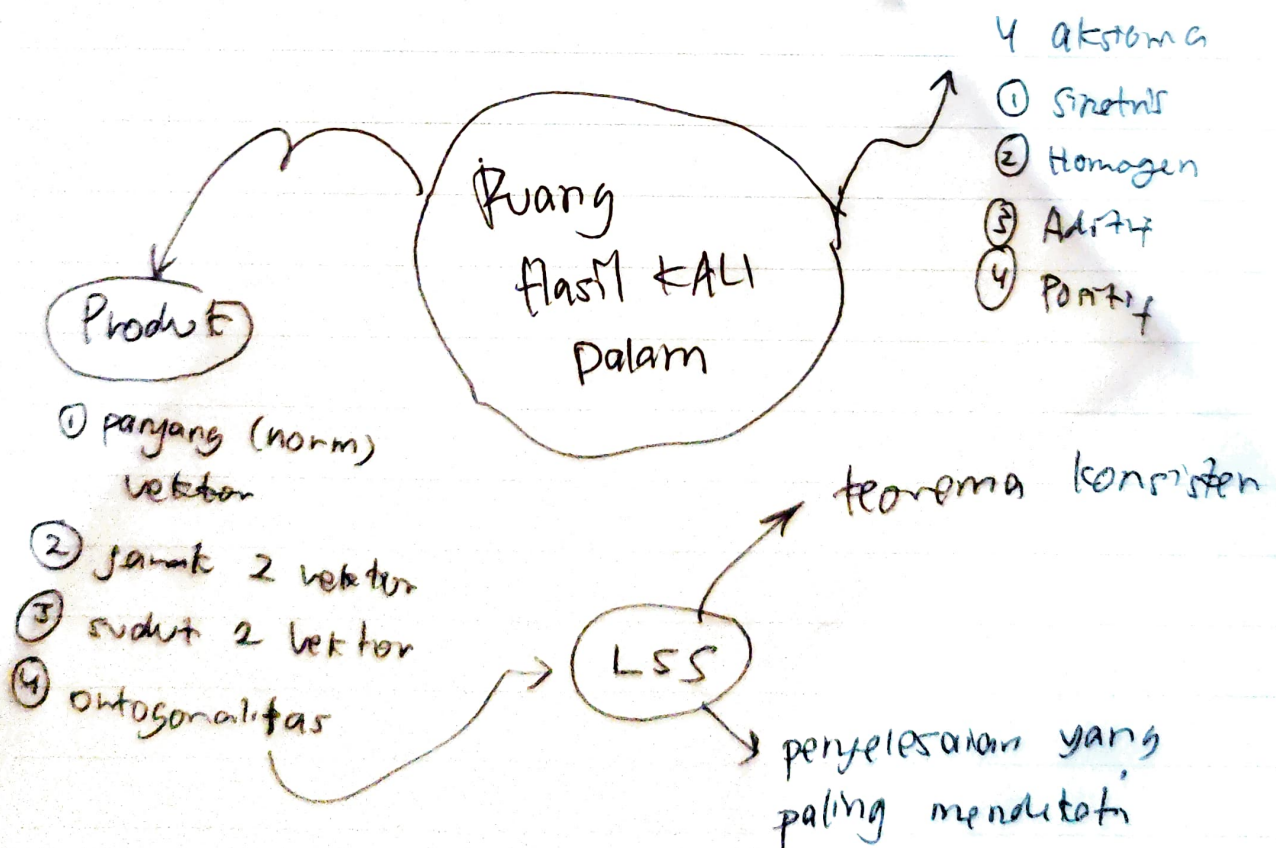 Ruang
Hasil KALI
Dalam
4 aksioma
① Simetris
② Homogen
③ Aditif
④ Positif
Produk
① panjang (norm)
vektor
② jarak 2 vektor
③ sudut 2 vektor
④ ortogonalitas
LSS
teorema konsisten
penyelesaian yang
paling mendekati